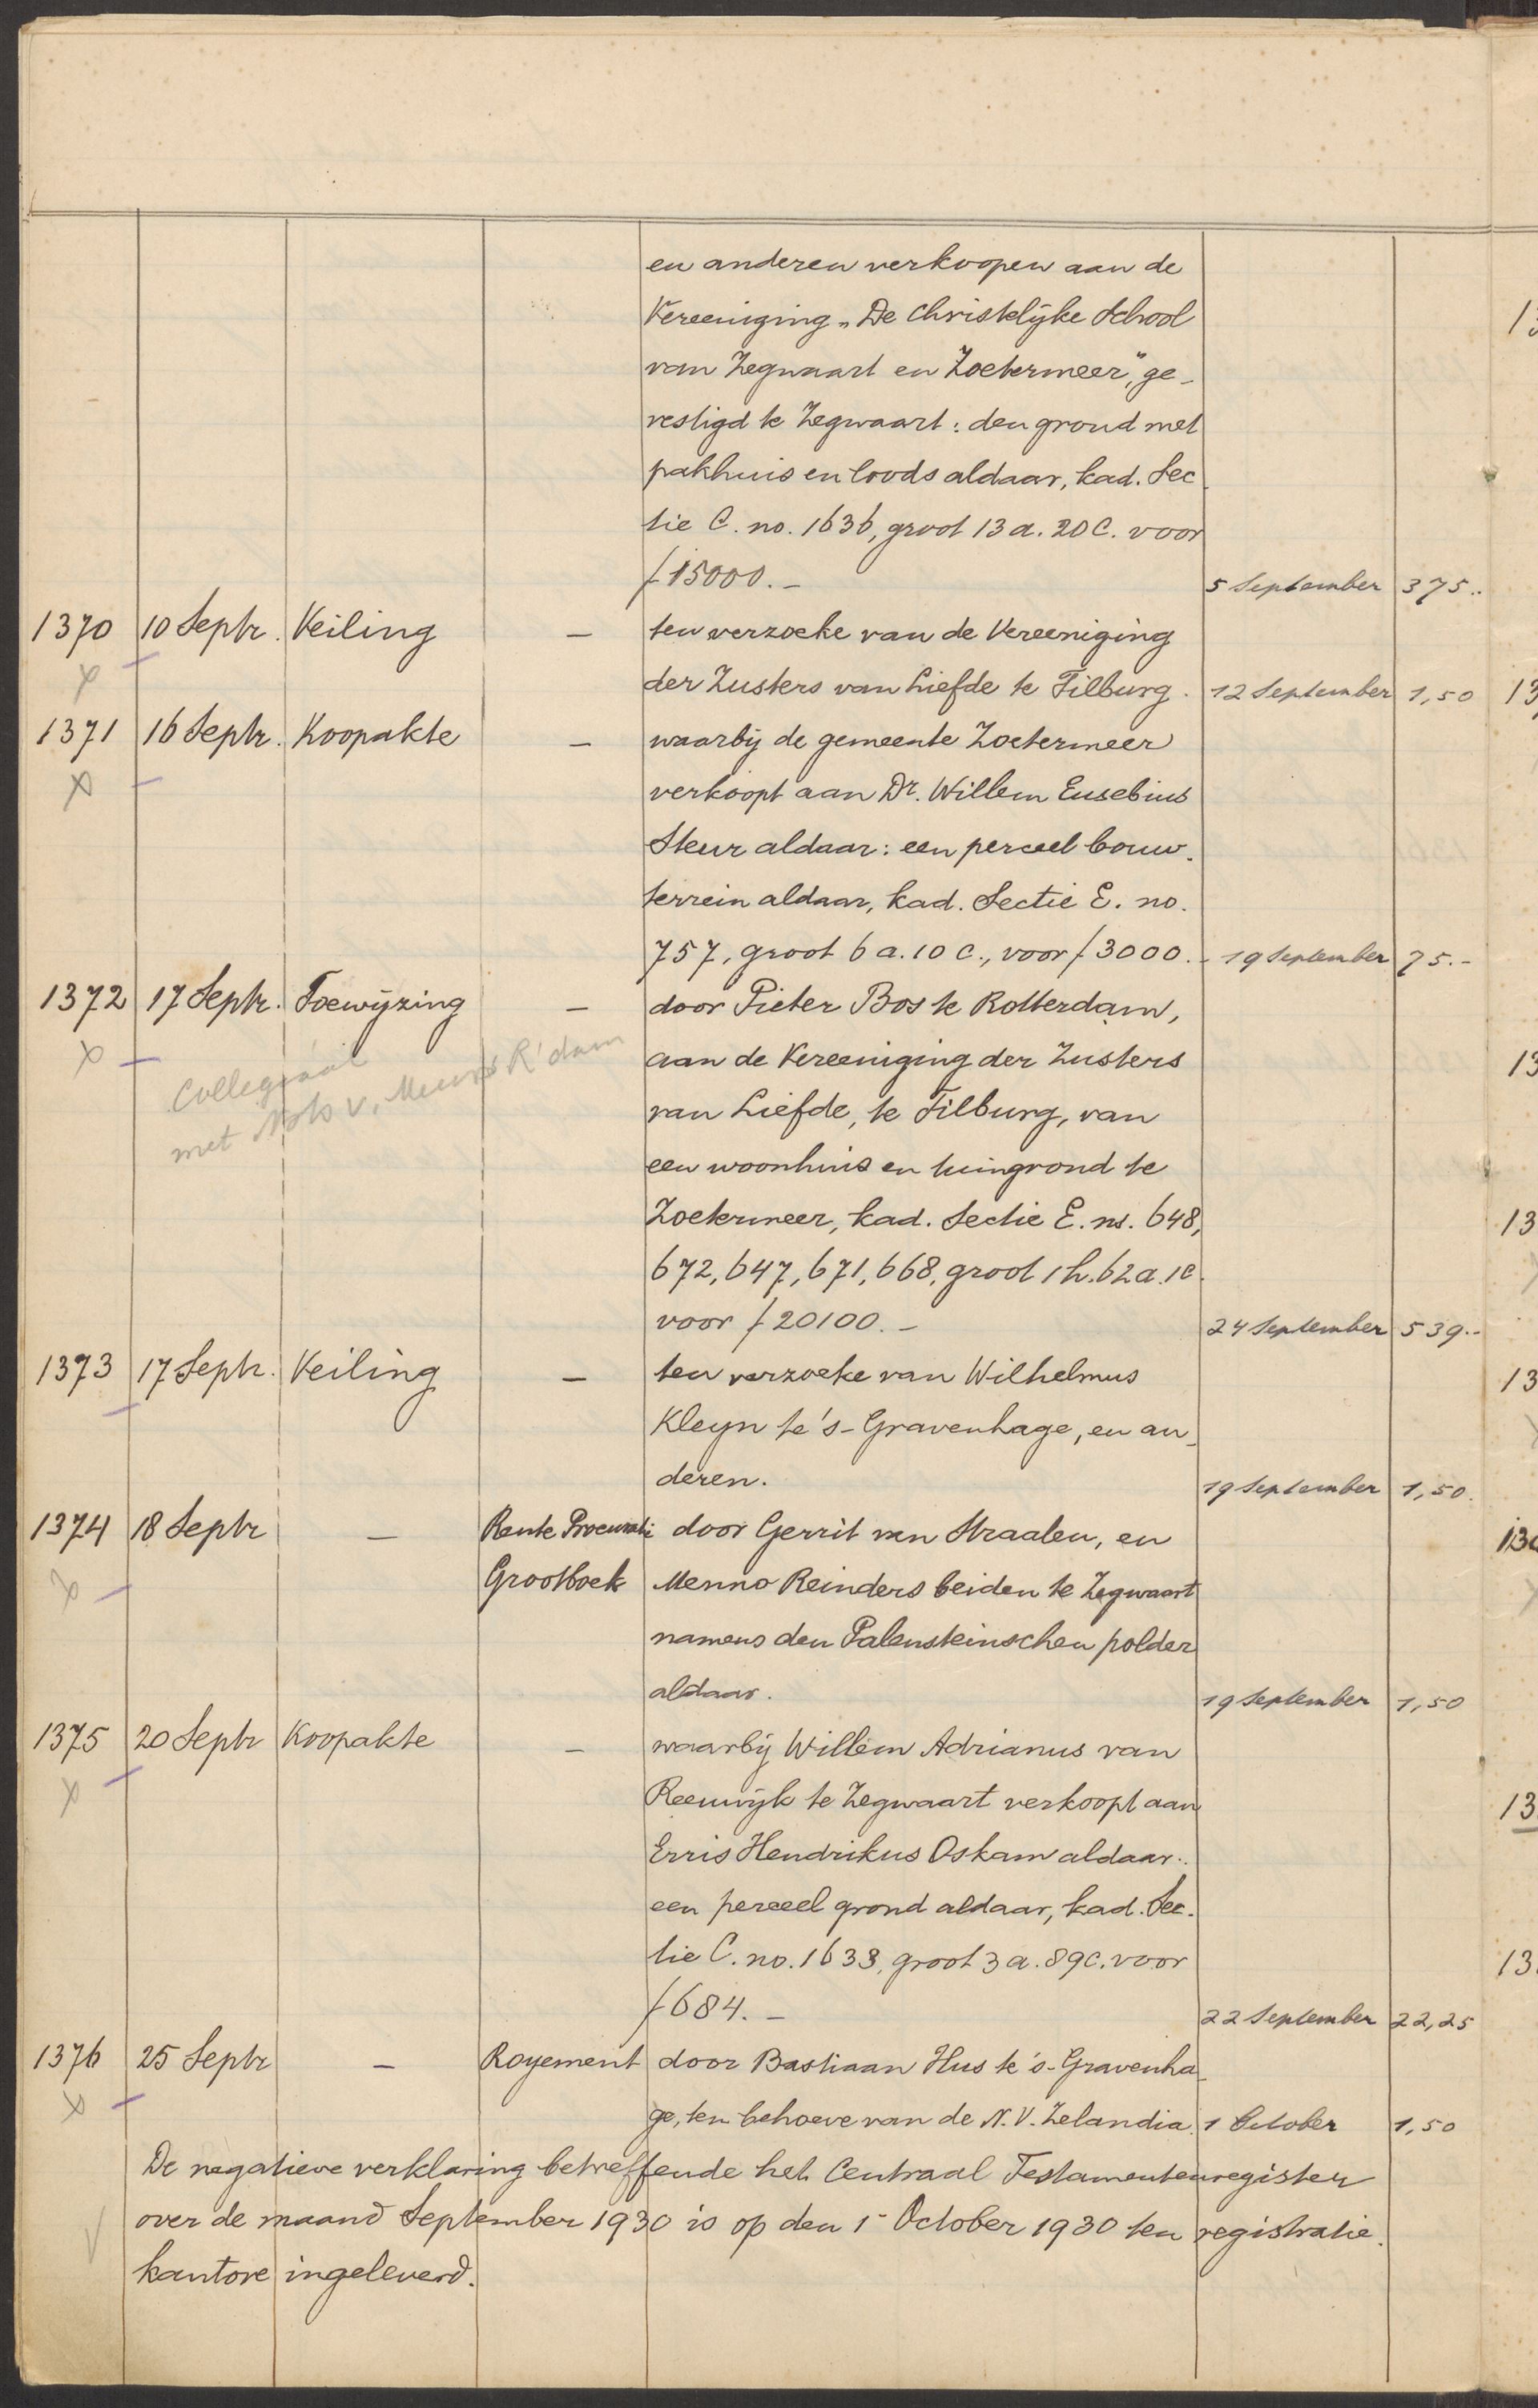 en anderen verkoopen aan de
Vereeniging „De Christelijke School
van Zegwaart en Zoetermeer”, ge-
vestigd te Zegwaart: den grond met
pakhuis en loods aldaar, kad. Sec-
tie C. no. 1636, groot 13 a. 20 c. voor
f 15000.- 5 September 375.-
1370 10 Septr. Veiling — ten verzoeke van de Vereeniging
der Zusters van Liefde te Tilburg. 12 September 1,50
1371 16 Septr. Koopakte — waarbij de gemeente Zoetermeer
verkoopt aan Dr. Willem Eusebius
Steur aldaar: een perceel bouw-
terrein aldaar, kad. Sectie E. no.
757, groot 6 a. 10 c., voor f 3000.- 19 September 75.-
1372 17 Septr. Toewijzing — door Pieter Bos te Rotterdam,
Collegiaal
met Nots v. R'dam
aan de Vereeniging der Zusters
van Liefde, te Tilburg, van
een woonhuis en tuingrond te
Zoetermeer, kad. Sectie E. ns. 648,
672, 647, 671, 668, groot 1 h. 62 a. 1 c.
voor f 20100.- 24 September 539.-
1373 17 Septr. Veiling — ten verzoeke van Wilhelmus
Kleyn te 's-Gravenhage, en an-
deren. 19 September 1,50.
1374 18 Septr — Rente Procuratie door Gerrit van Straalen, en
Grootboek Menno Reinders beiden te Zegwaart
namens den Palensteinschen polder
aldaar. 19 September 1,50
1375 20 Septr Koopakte — waarbij Willem Adrianus van
Reeuwijk te Zegwaart verkoopt aan
Erris Hendrikus Oskam aldaar:
een perceel grond aldaar, kad. Sec-
tie C. no. 1633, groot 3 a. 89 c. voor
f 684.- 22 September 22,25
1376 25 Septr — Royement door Bastiaan Hus te 's-Gravenha-
ge, ten behoeve van de N.V. Zelandia. 1 October 1,50
De negatieve verklaring betreffende het Centraal Testamentenregister
over de maand September 1930 is op den 1- October 1930 ten registratie-
kantore ingeleverd.